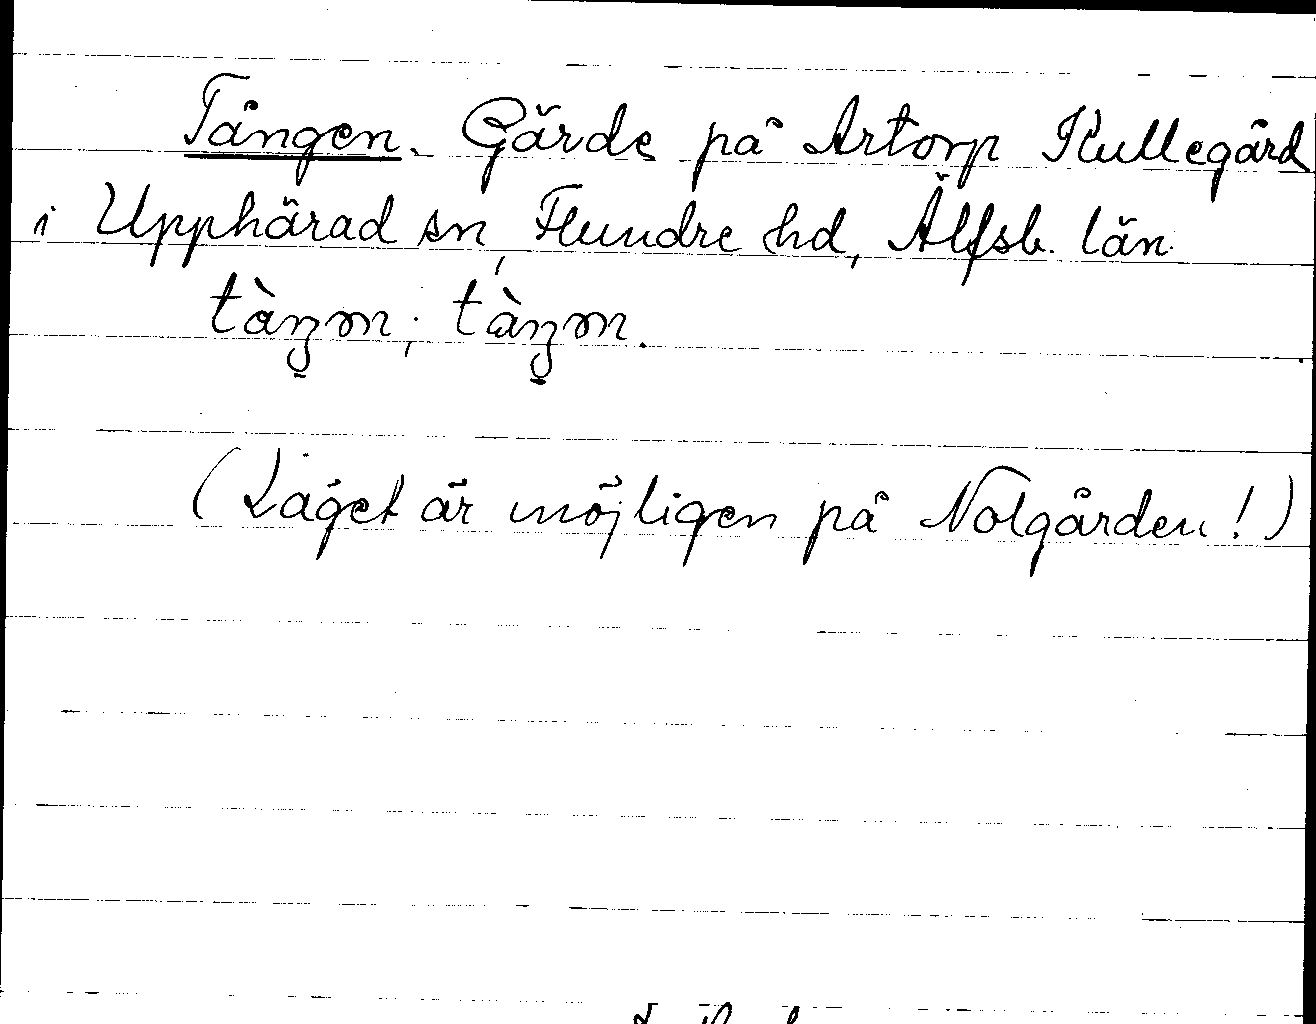 Tången. Gärde på Artorp Kullegård
i Upphärad sn, Flundre hd, Älfsb. län.
tàŋm; tàŋm.
(Läget är möjligen på Nolgården!)